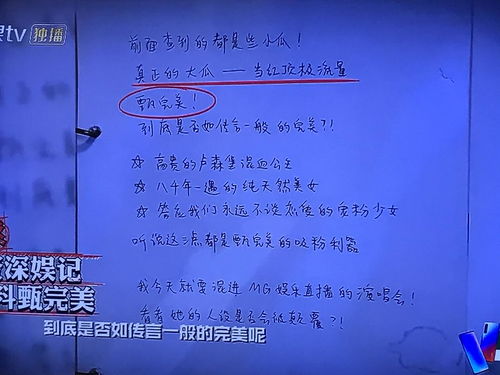 tv 独播
前面查到的都是些小瓜！
真正的大瓜——当红顶极流量
甄完美！
到底是否如传言一般的完美?!
☆ 高贵的卢森堡混血公主
☆ 八千年一遇的纯天然美女
☆ 答应我们永远不谈恋爱的宠粉少女
听说这三点都是甄完美的吸粉利器
我今天就要混进MG娱乐直播的演唱会！
看看她的人设是否会被颠覆?!
深娱记
料甄完美
到底是否如传言一般的完美呢